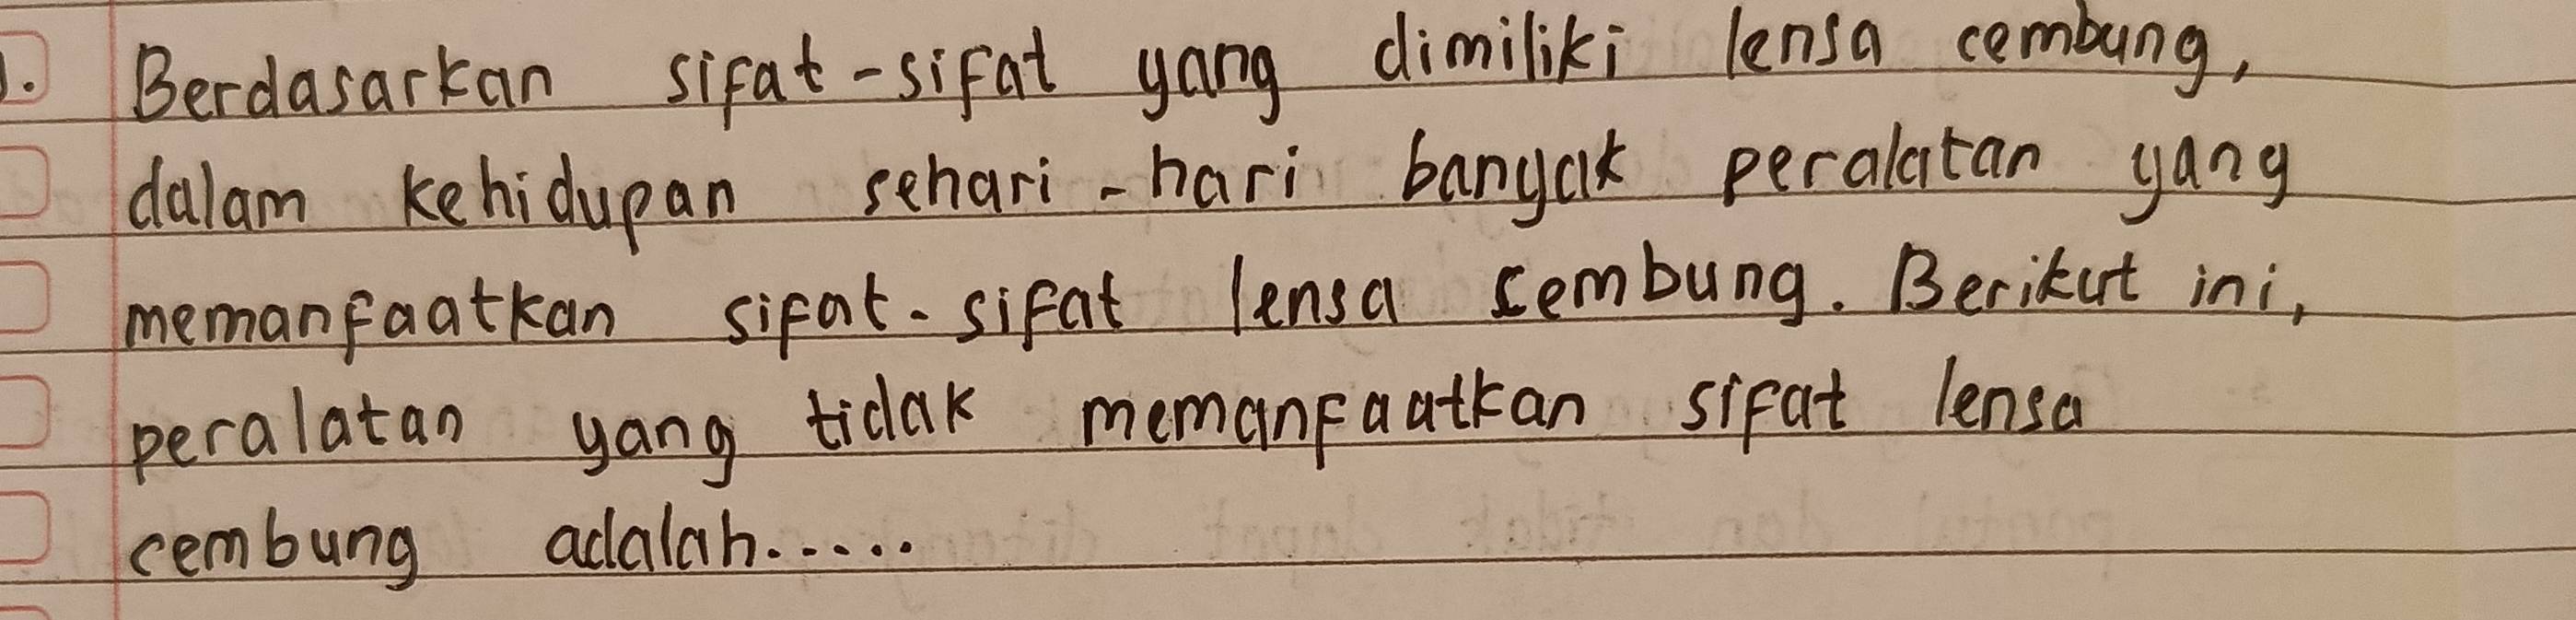 Berdasarkan sifat-sifat yang dimiliki lensa cembung,
dalam kehidupan sehari-hari banyak peralatan yang
memanfaatkan sifat-sifat lensa cembung. Berikut ini,
peralatan yang tidak memanfaatkan sifat lensa
cembung adalah.....